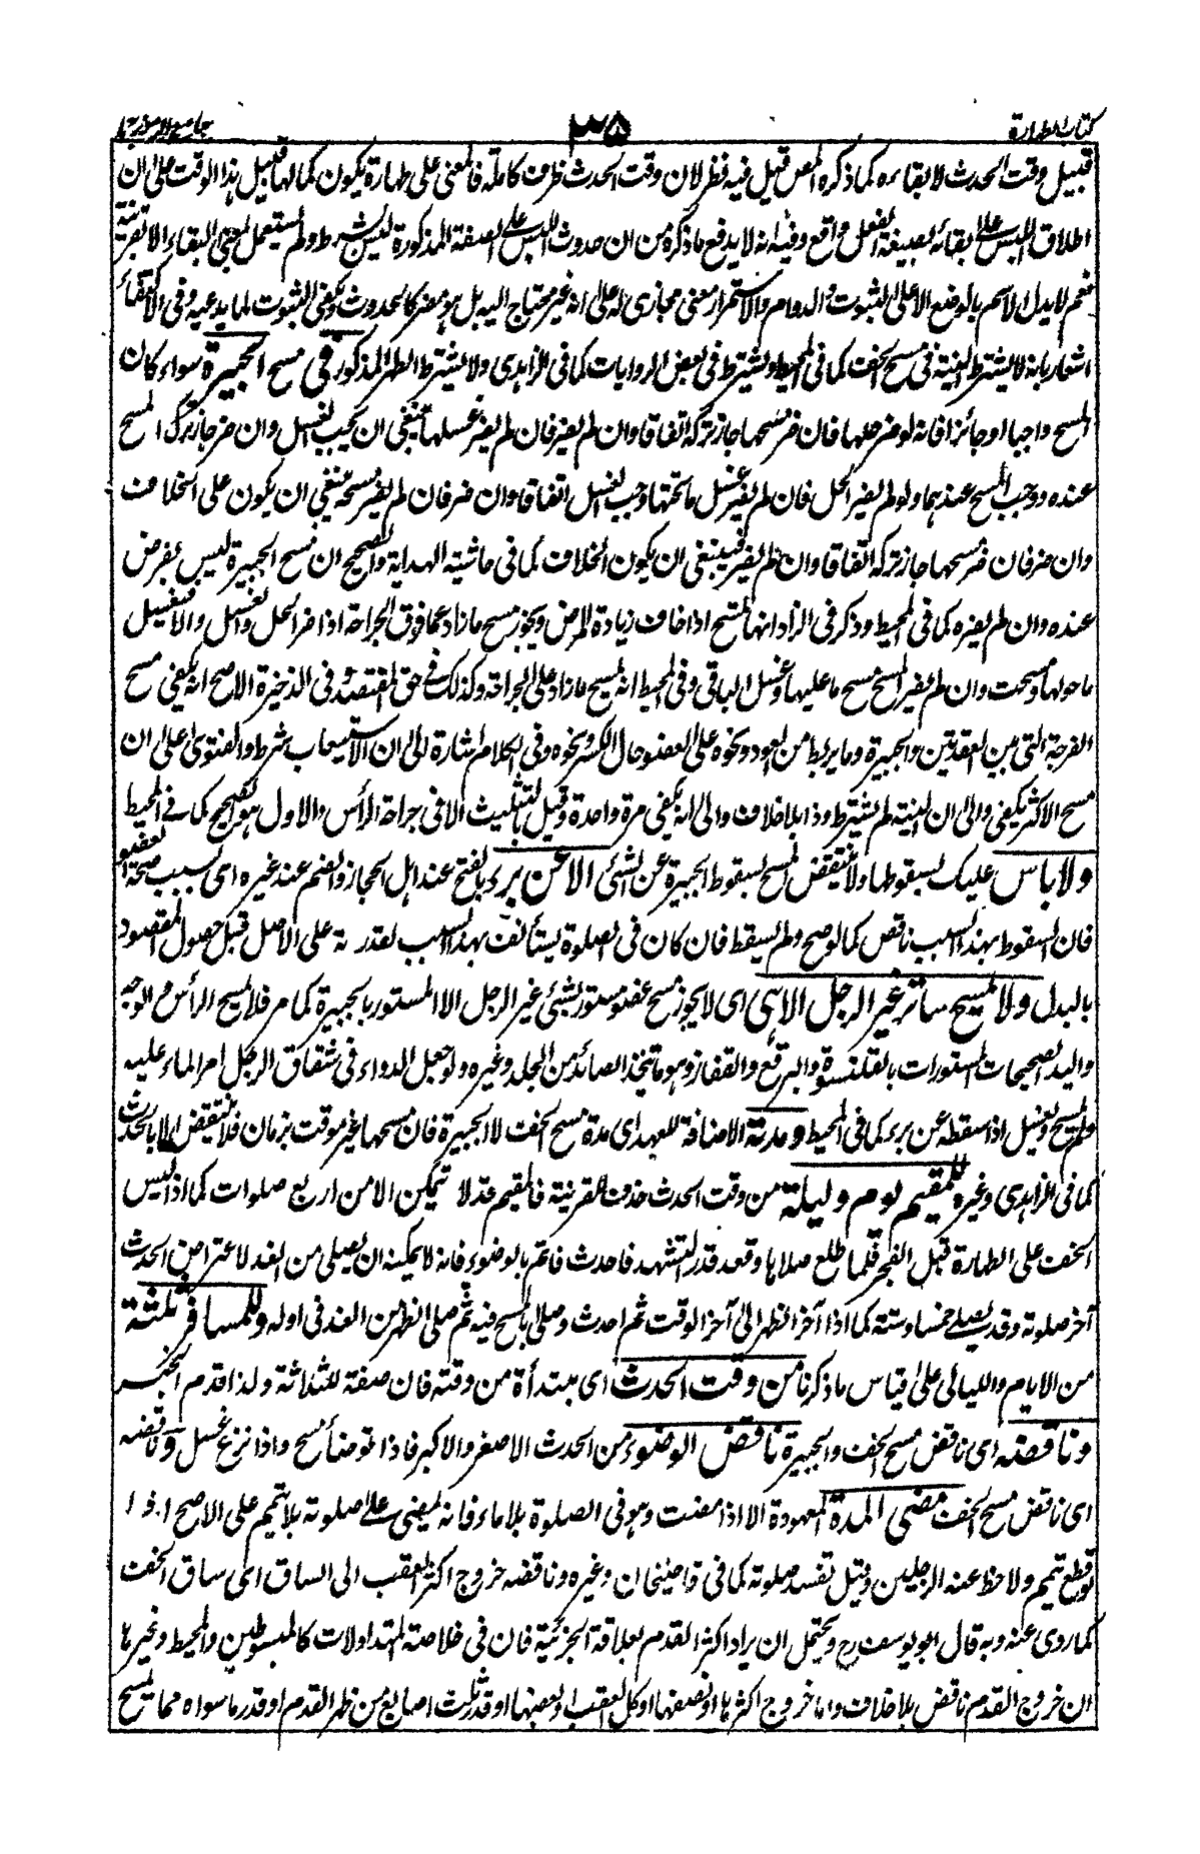 كتاب الطهارة ٣٥ جامع الرموز
قبيل وقت الحدث لا بقاءه كما ذكره المص قيل فيه نظر لان وقت الحدث ظرف كاملة فالمعنى على طهارة يكون كمالها قبيل هذا الوقت على ان
اطلاق اللبس على بقائه بصيغة الفعل واقع وفيه انه لا يدفع ما ذكره من ان حدوث اللبس على الصفة المذكورة ليس بشرط ولم يستعمل بمعنى البقاء الا بقرينة
نعم لا يدل الاسم بالوضع الا على الثبوت والدوام والاستمرار معنى مجازى له على انه غير محتاج اليه بل هو مضر كالحدوث ويكفى الثبوت لما يدعيه وفى الاكتفاء
اشعار بانه لا يشترط النية فى مسح الخف كما فى المحيط ويشترط فى بعض الروايات كما فى الزاهدى ولا يشترط الطهر المذكور فى مسح الجبيرة سواء كان
المسح واجبا او جائزا فانه لو ضر حلها فان ضر مسحها جاز تركه اتفاقا وان لم يضر فان لم يضر غسلها ينبغى ان يجب الغسل وان ضر جاز ترك المسح
عنده ووجب المسح عندهما ولو لم يضر الحل فان لم يضر غسل ما تحتها وجب الغسل اتفاقا وان ضر فان لم يضر مسحه ينبغى ان يكون على الخلاف
وان ضر فان ضر مسحها جاز تركه اتفاقا وان لم يضر فينبغى ان يكون الخلاف كما فى حاشية الهداية والصحيح ان مسح الجبيرة ليس بفرض
عنده وان لم يضره كما فى المحيط وذكر فى الزاد انها تمسح اذا خاف زيادة المرض ويجوز مسح ما زاد عما فوق الجراحة اذا ضر الحل والغسل والا فيغسل
ما حولها ومسحت وان لم يضر المسح مسح ما عليها وغسل الباقى وفى المحيط انه لمسح ما زاد على الجراحة وكذلك فى حق المفتصد وفى الذخيرة الاصح انه يكفى مسح
الفرجة التى بين العقدتين والجبيرة وما يربط من العود ونحوه على العضو حال الكسر ونحوه وفى الكلام اشارة الى ان الاستيعاب شرط والفتوى على ان
مسح الاكثر يكفى والى ان النية لم يشترط وذا بلا خلاف والى انه يكفى مرة واحدة وقيل بالتثليث الا فى جراحة الرأس والاول هو الصحيح كما فى المحيط
ولا باس عليك بسقوطها ولا ينتقض المسح بسقوط الجبيرة عن الشئ الا عن برء بالفتح عند اهل الحجاز والضم عند غيره اى بسبب صحة العضو
فان السقوط بهذا السبب ناقض كما لو صح ولم يسقط فان كان فى الصلوة يستأنف بهذا السبب لقدرته على الاصل قبل حصول المقصود
بالبدل ولا يمسح ساتر غير الرجل الا هى اى لا يجوز مسح عضو مستور بشئ غير الرجل الا المستور بالجبيرة كما مر فلا يمسح الرأس والوجه
واليد الصحيحات المستورات بالقلنسوة والبرقع والقفاز وهو ما يتخذ الصائد من الجلد وغيره ولو جعل الدواء فى شقاق الرجل امر الماء عليه
ولم يمسح ويغسل اذا سقطه عن برء كما فى المحيط ومدته الاضافة للعهد اى مدة مسح الخف لا الجبيرة فان مسحها غير موقت بزمان فلا ينتقض الا بالحدث
كما فى الزاهدى وغيره للمقيم يوم وليلة من وقت الحدث حذف للقرينة فالمقيم قد لا تمكن الا من اربع صلوات كما اذا لبس
الخف على الطهارة قبل الفجر فلما طلع صلاها وقعد قدر التشهد فاحدث فاتم بالوضوء فانه لا يمكنه ان يصلى من الغد لاعتراض الحدث
آخر صلوته وقد يصلى خمسا وستة كما اذا آخر الظهر الى آخر الوقت ثم احدث وصلى بالمسح فيه ثم صلى الظهر من الغد فى اوله وللمسافر ثلثة
من الايام والليالى على قياس ما ذكرنا من وقت الحدث اى مبتدأة من وقته فان صفة للثلاثة ولذا قدم الخبر
وناقضه اى ناقض مسح الخف والجبيرة ناقض الوضوء من الحدث الاصغر والاكبر فاذا توضأ مسح واذا نزع غسل وناقضه
اى ناقض مسح الخف مضى المدة المعهودة الا اذا مضت وهو فى الصلوة بلا ماء فانه يمضى على صلوته بلا تيمم على الاصح اذا
لو قطع تيمم ولا حظ عنه الرجلين وقيل تفسد صلوته كما فى قاضيخان وغيره وناقضه خروج اكثر العقب الى الساق اى ساق الخف
كما روى عنه وبه قال ابو يوسف رح ويحتمل ان يراد اكثر القدم بعلاقة الجزئية فان فى خلاصة المتداولات كالمبسوطين والمحيط وغيرها
ان خروج القدم ناقض بلا خلاف واما خروج اكثرها او نصفها او كل العقب او بعضها او قدر ثلث اصابع من ظهر القدم او قدر ما سواه مما يمسح